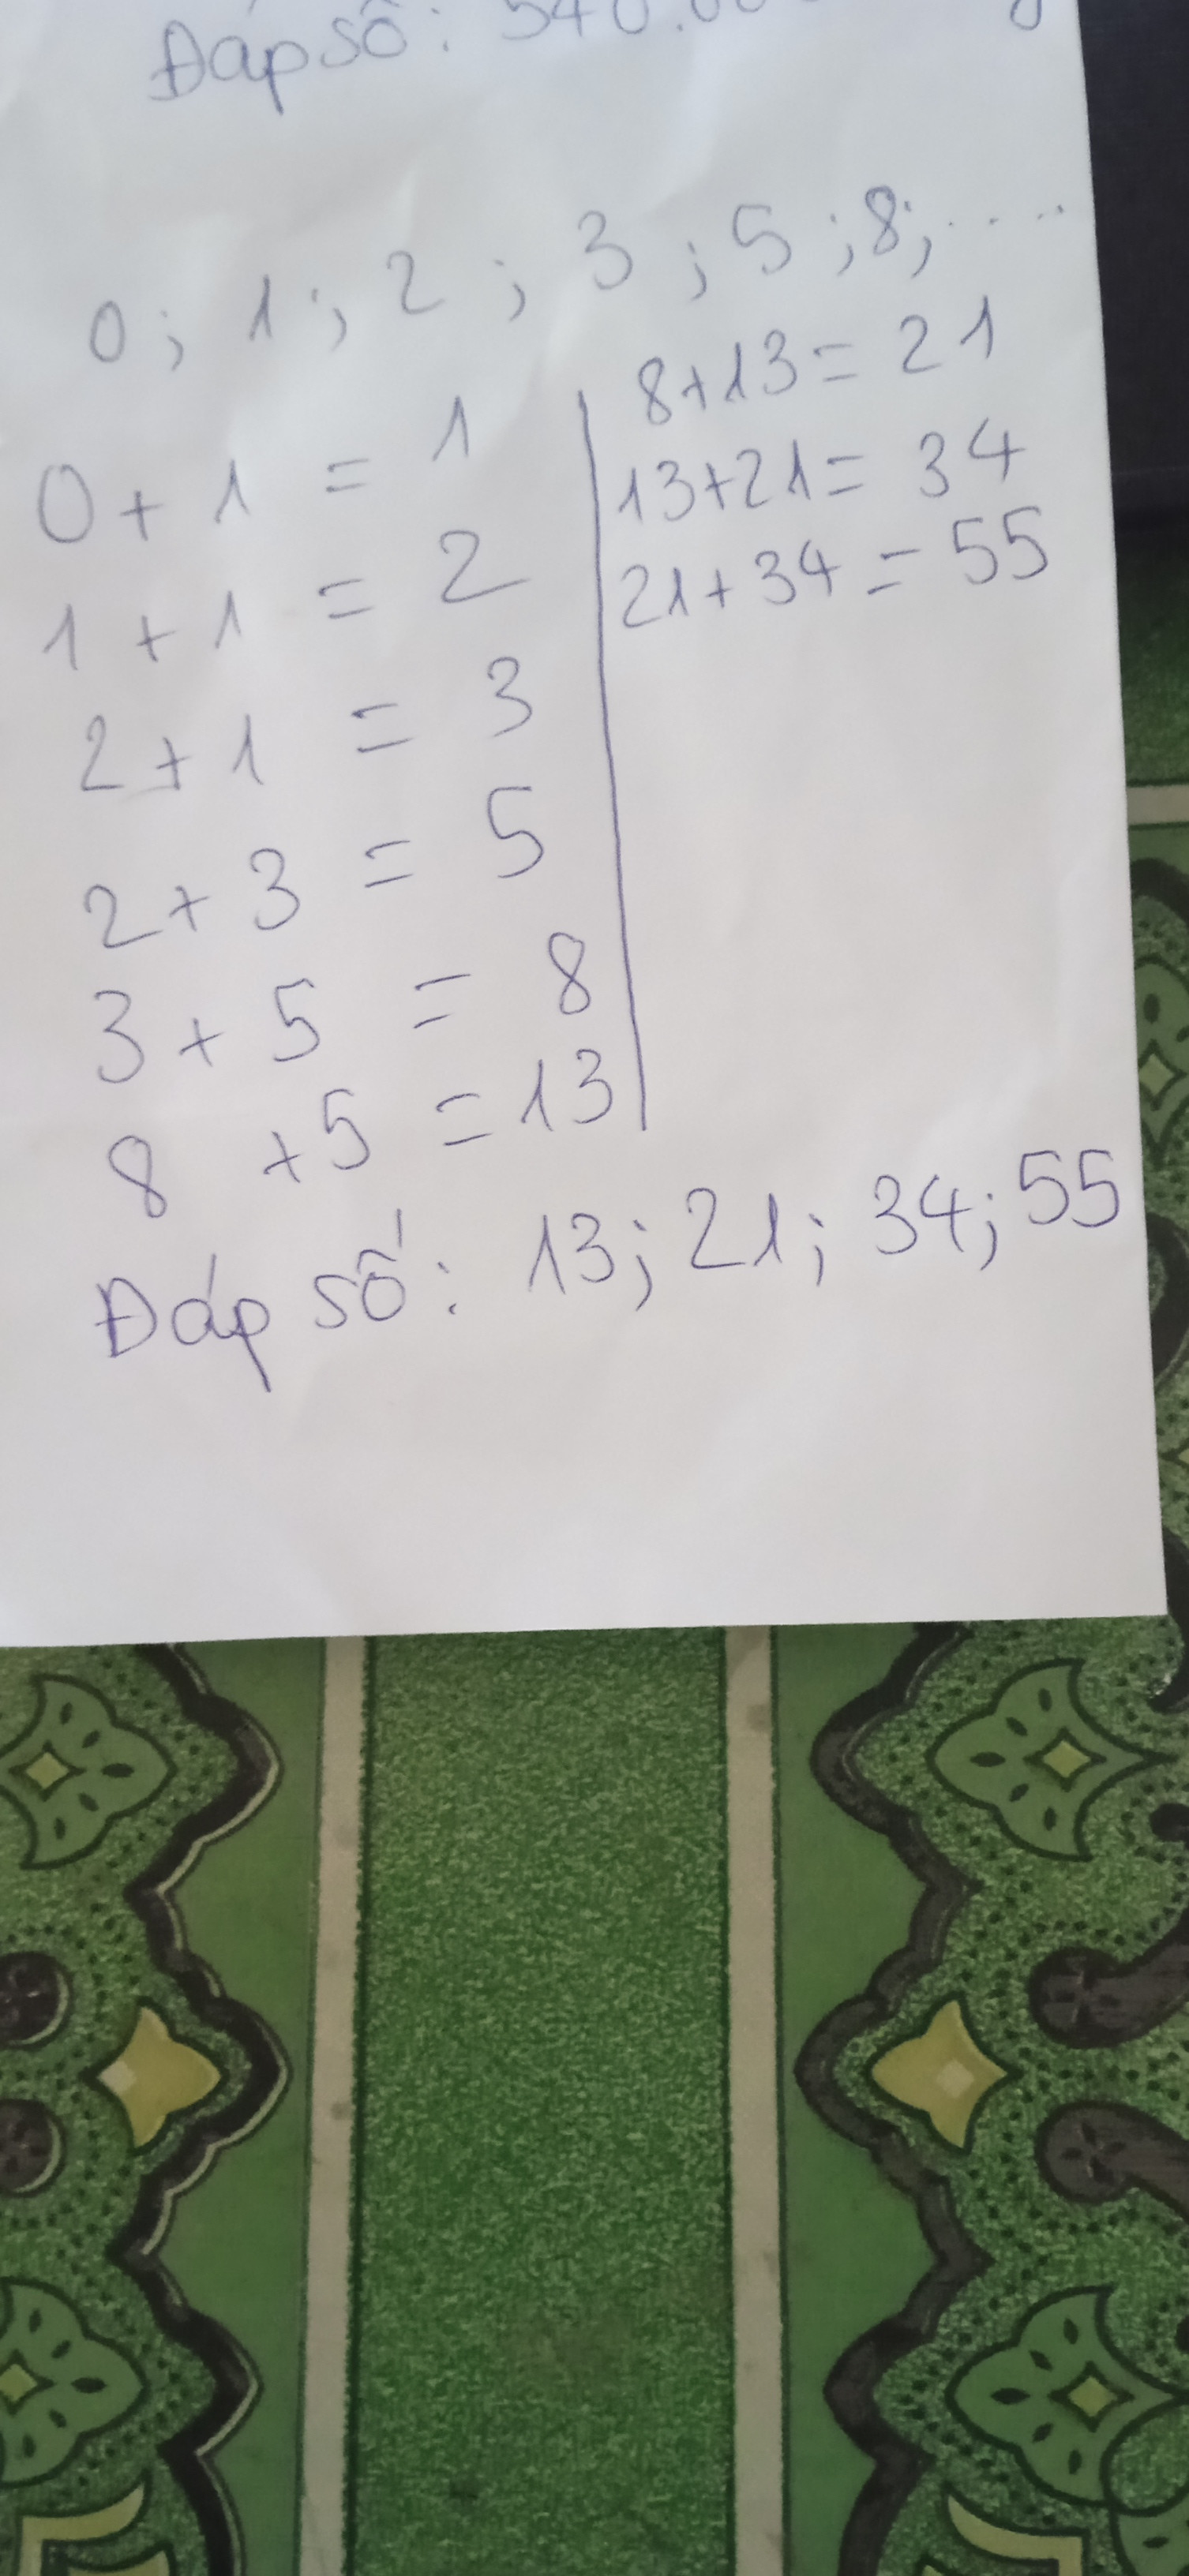 Đáp số: 540.00
0; 1; 2; 3; 5; 8; .....
0 + 1 = 1
1 + 1 = 2
2 + 1 = 3
2 + 3 = 5
3 + 5 = 8
8 + 5 = 13
8+13= 21
13+21= 34
21+34 = 55
Đáp số: 13; 21; 34; 55